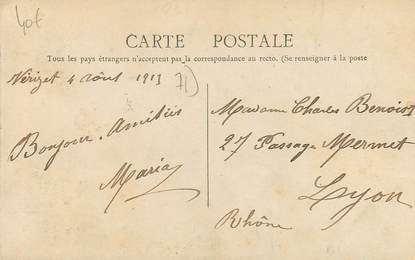 40f
CARTE POSTALE
Tous les pays étrangers n'acceptent pas la correspondance au recto. (Se renseigner à la poste
Vérizet 4 août 1913
71)
Bonjour. Amitiés
Maria
Madame Charles Benoist
27 Passage Mermet
Lyon
Rhône